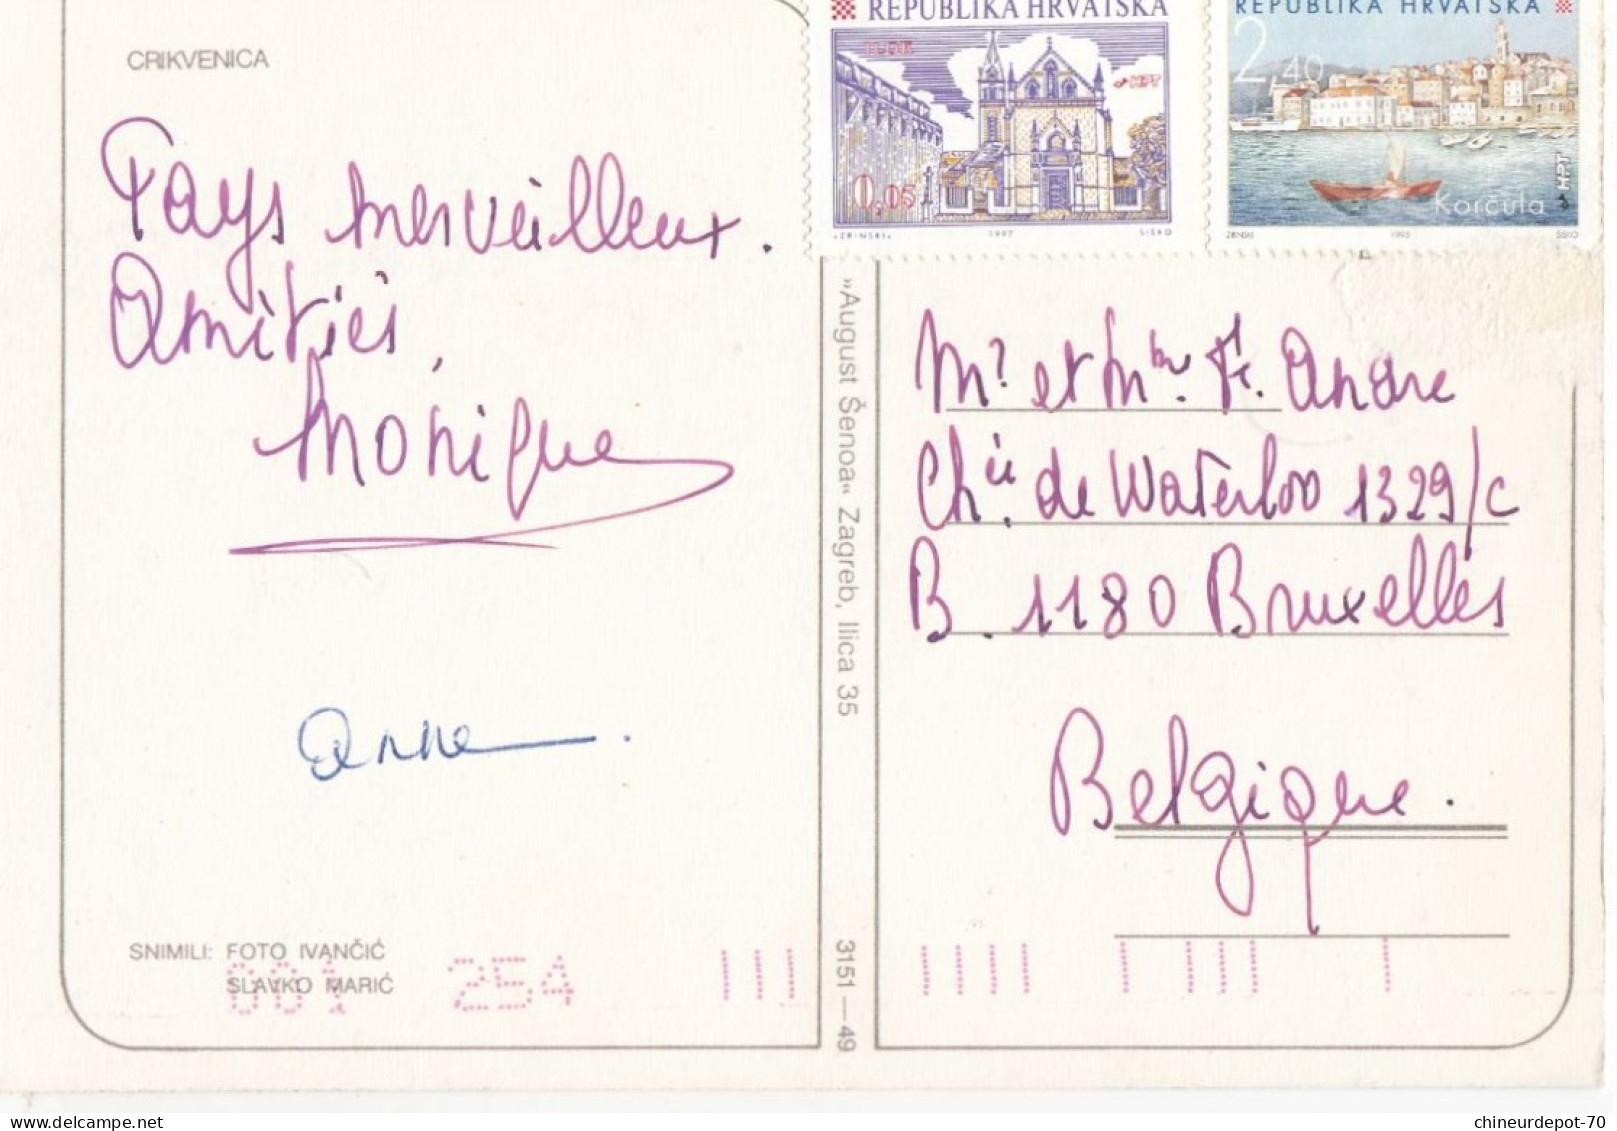 CRIKVENICA
Pays merveilleux.
Amitiés,
Monique
Anne.
SNIMILI: FOTO IVANČIĆ
SLAVKO MARIĆ
001 254
»August Šenoa« Zagreb, Ilica 35
3151—49
REPUBLIKA HRVATSKA
ILOK
HPT
0,05
„ZRINSKI„ 1997 SISKO
REPUBLIKA HRVATSKA
2,40
HPT
Korčula
ZRINSKI 1995 SISKO
Mr et Mme Fr. André
Chée de Waterloo 1329/c
B. 1180 Bruxelles
Belgique.
chineurdepot-70